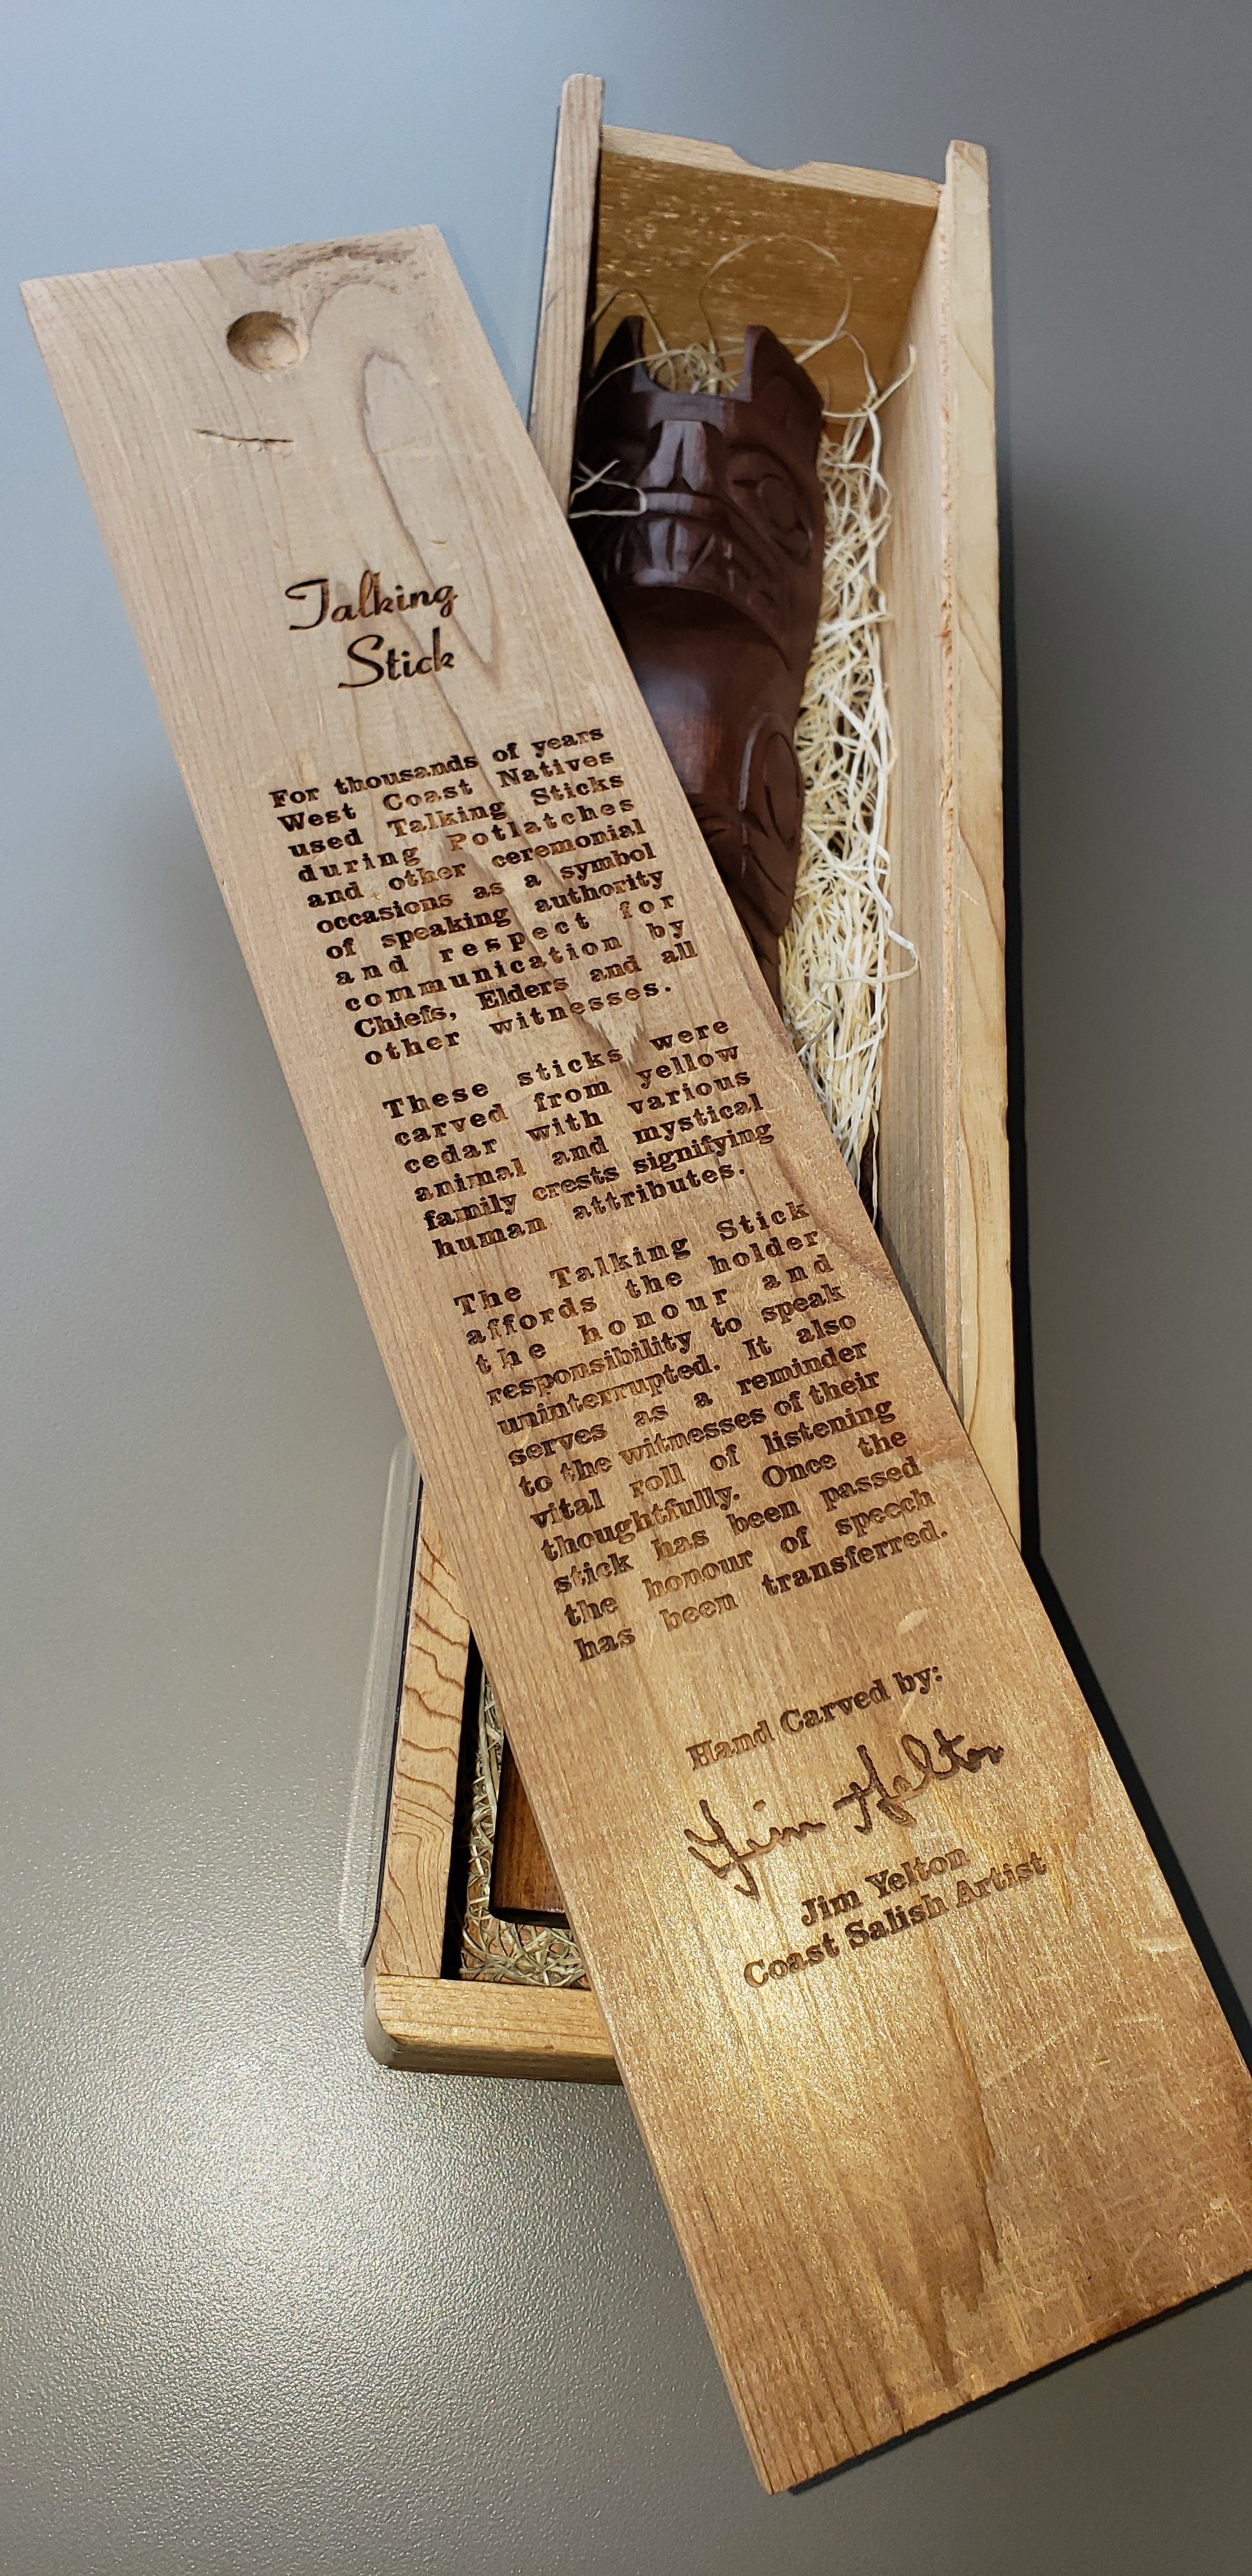 Talking
Stick
For thousands of years
West Coast Natives
used Talking Sticks
during Potlatches
and other ceremonial
occasions as a symbol
of speaking authority
and respect for
communication by
Chiefs, Elders and all
other witnesses.
These sticks were
carved from yellow
cedar with various
animal and mystical
family crests signifying
human attributes.
The Talking Stick
affords the holder
the honour and
responsibility to speak
uninterrupted. It also
serves as a reminder
to the witnesses of their
vital roll of listening
thoughtfully. Once the
stick has been passed
the honour of speech
has been transferred.
Hand Carved by:
Jim Yelton
Jim Yelton
Coast Salish Artist